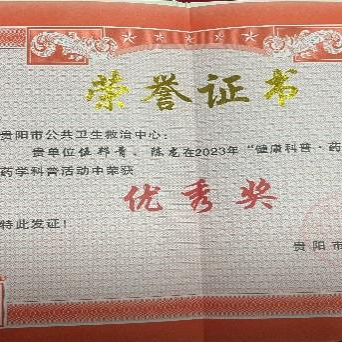 荣誉证书
贵阳市公共卫生救治中心:
贵单位伍邦青、陈龙在2023年“健康科普·药
药学科普活动中荣获
优秀奖
特此发证!
贵阳市